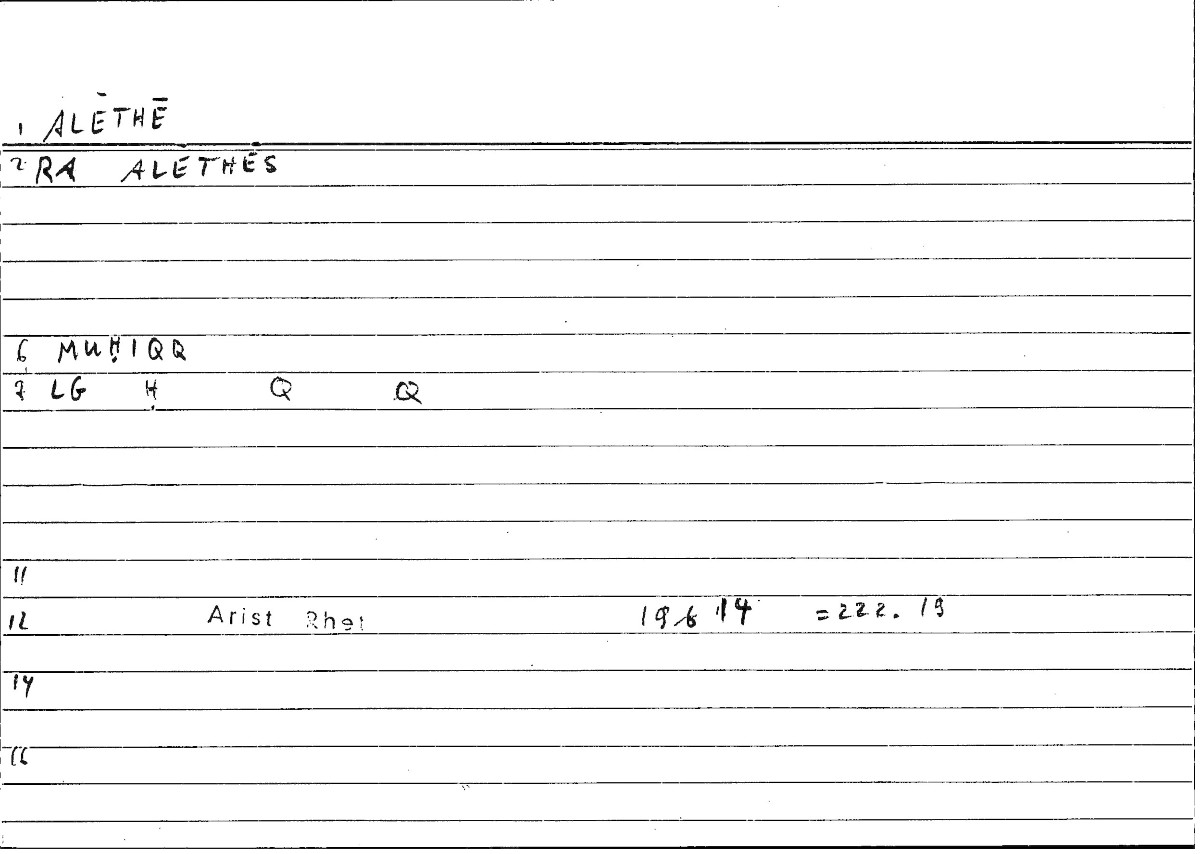 1 ALĒTHĒ
2 RA ALĒTHĒS
6 MUḤIQQ
7 LG Ḥ Q Q
11
12 Arist Rhet 196 14 =222.19
14
16